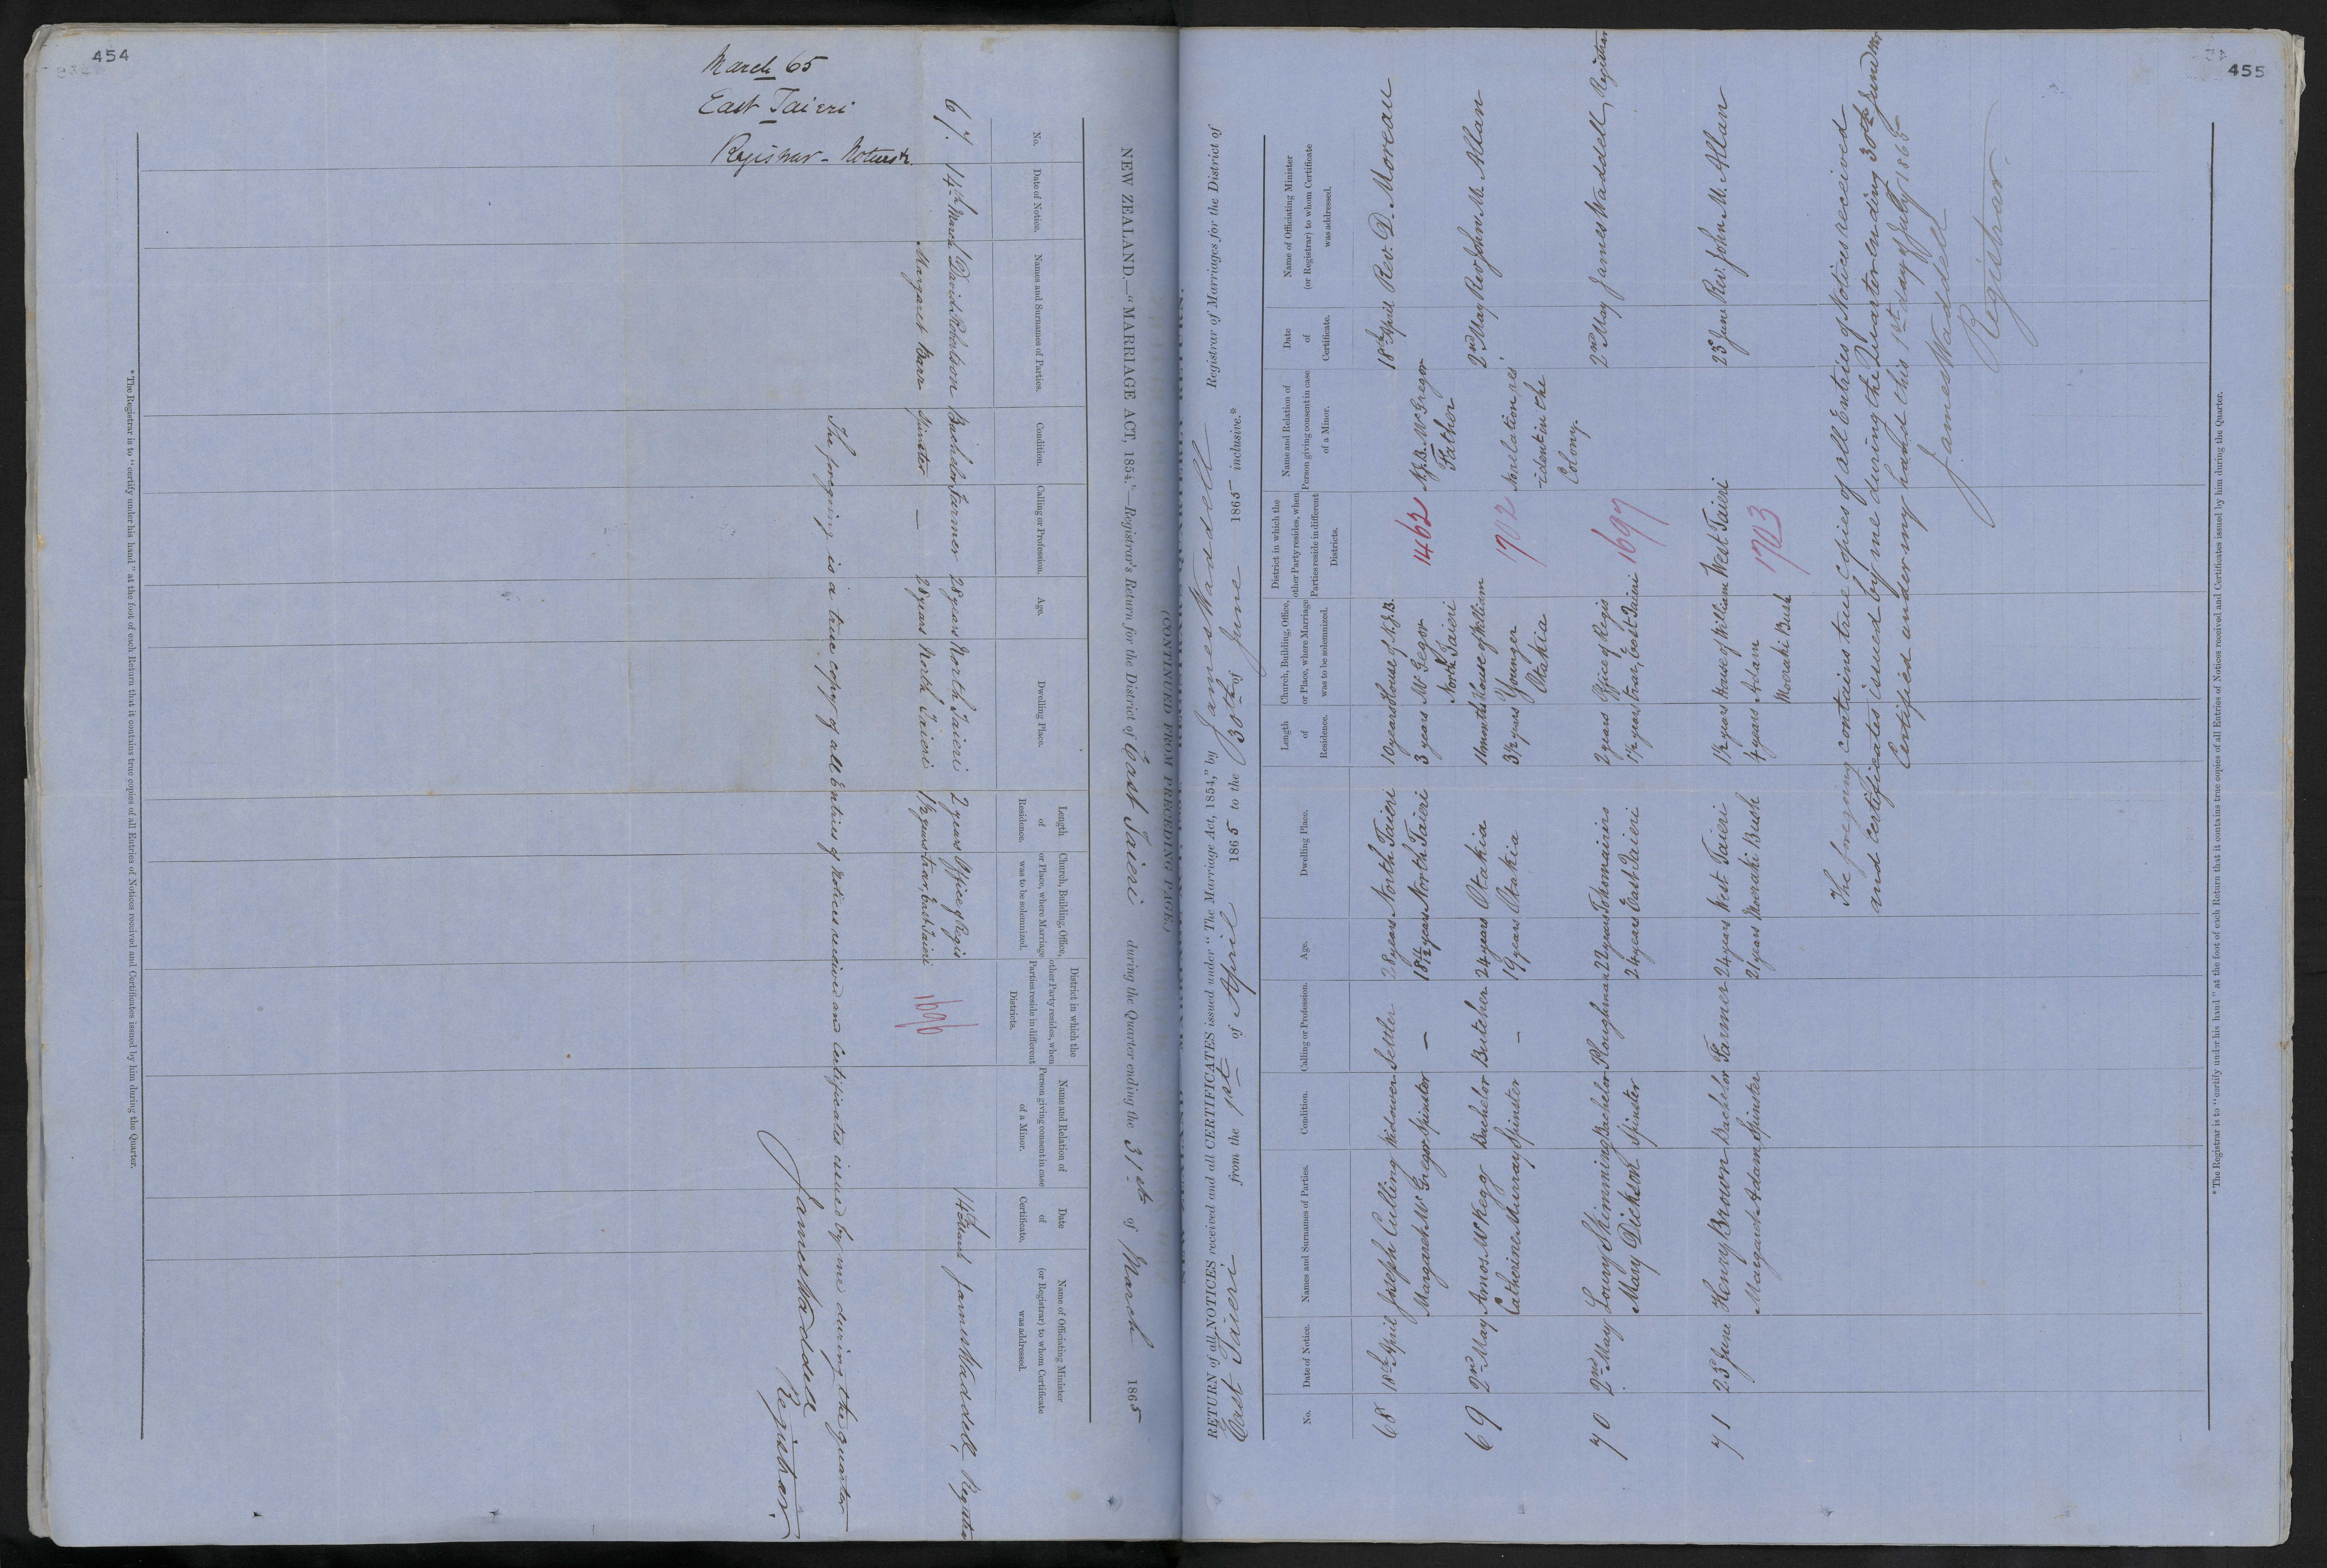 454
March 65
East Taieri
Registrar - Returns
NEW ZEALAND.—"MARRIAGE ACT, 1854."—Registrar's Return for the District of East Taieri during the Quarter ending the 31st of March 1865
No.
Date of Notice.
Names and Surnames of Parties.
Condition.
Calling or Profession.
Age.
Dwelling Place.
Length
of
Residence.
Church, Building, Office,
or Place, where Marriage
was to be solemnized.
District in which the
other Party resides, when
Parties reside in different
Districts.
Name and Relation of
Person giving consent in case
of a Minor.
Date
of
Certificate.
Name of Officiating Minister
(or Registrar) to whom Certificate
was addressed.
67. 14th March David Robertson Bachelor Farmer 28 years North Taieri 2 years Office of Regis 14th March James Waddell, Registrar
Margaret Barr Spinster — 28 years North Taieri 1½ years trar, East Taieri
1696
The foregoing is a true copy of all Entries of Notices received and Certificates issued by me during the quarter
James Waddell
Registrar.
*The Registrar is to "certify under his hand" at the foot of each Return that it contains true copies of all Entries of Notices received and Certificates issued by him during the Quarter.
455
(CONTINUED FROM PRECEDING PAGE.)
RETURN of all NOTICES received and all CERTIFICATES issued under "The Marriage Act, 1854," by James Waddell Registrar of Marriages for the District of
East Taieri from the 1st of April 1865 to the 30th of June 1865 inclusive.*
No.
Date of Notice.
Names and Surnames of Parties.
Condition.
Calling or Profession.
Age.
Dwelling Place.
Length
of
Residence.
Church, Building, Office,
or Place, where Marriage
was to be solemnized.
District in which the
other Party resides, when
Parties reside in different
Districts.
Name and Relation of
Person giving consent in case
of a Minor.
Date
of
Certificate.
Name of Officiating Minister
(or Registrar) to whom Certificate
was addressed.
68 18th April Joseph Culling Widower Settler 28 years North Taieri 10 years House of A.J.B. 18th April Rev. D. Moreau
Margaret McGregor Spinster — 18½ years North Taieri 3 years McGegor 1462 A.J.B. McGregor
North Taieri Father
69 2nd May Amos McKegg Bachelor Butcher 24 years Otakia 11 months House of William 2nd May Rev John M. Allan
Catherine Murray Spinster — 19 years Otakia 3½ years Younger 1702 No relation res
Otakia -ident in the
Colony.
70 2nd May Lowry Skimming Bachelor Ploughman 22 years Tokomairiro 2 years Office of Regis 2nd May James Waddell, Registrar
Mary Dickson Spinster 24 years East Taieri 1½ years trar, East Taieri 1697
71 23rd June Henry Brown Bachelor Farmer 24 years West Taieri 1½ years House of William West Taieri 23rd June Rev. John M. Allan
Margaret Adam Spinster 21 years Moeraki Bush 4 years Adam 1703
Moeraki Bush
The foregoing contains true copies of all Entries of Notices received
and Certificates issued by me during the Quarter ending 30th June
Certified under my hand this 1st day of July 1865
James Waddell
Registrar
*The Registrar is to "certify under his hand" at the foot of each Return that it contains true copies of all Entries of Notices received and Certificates issued by him during the Quarter.